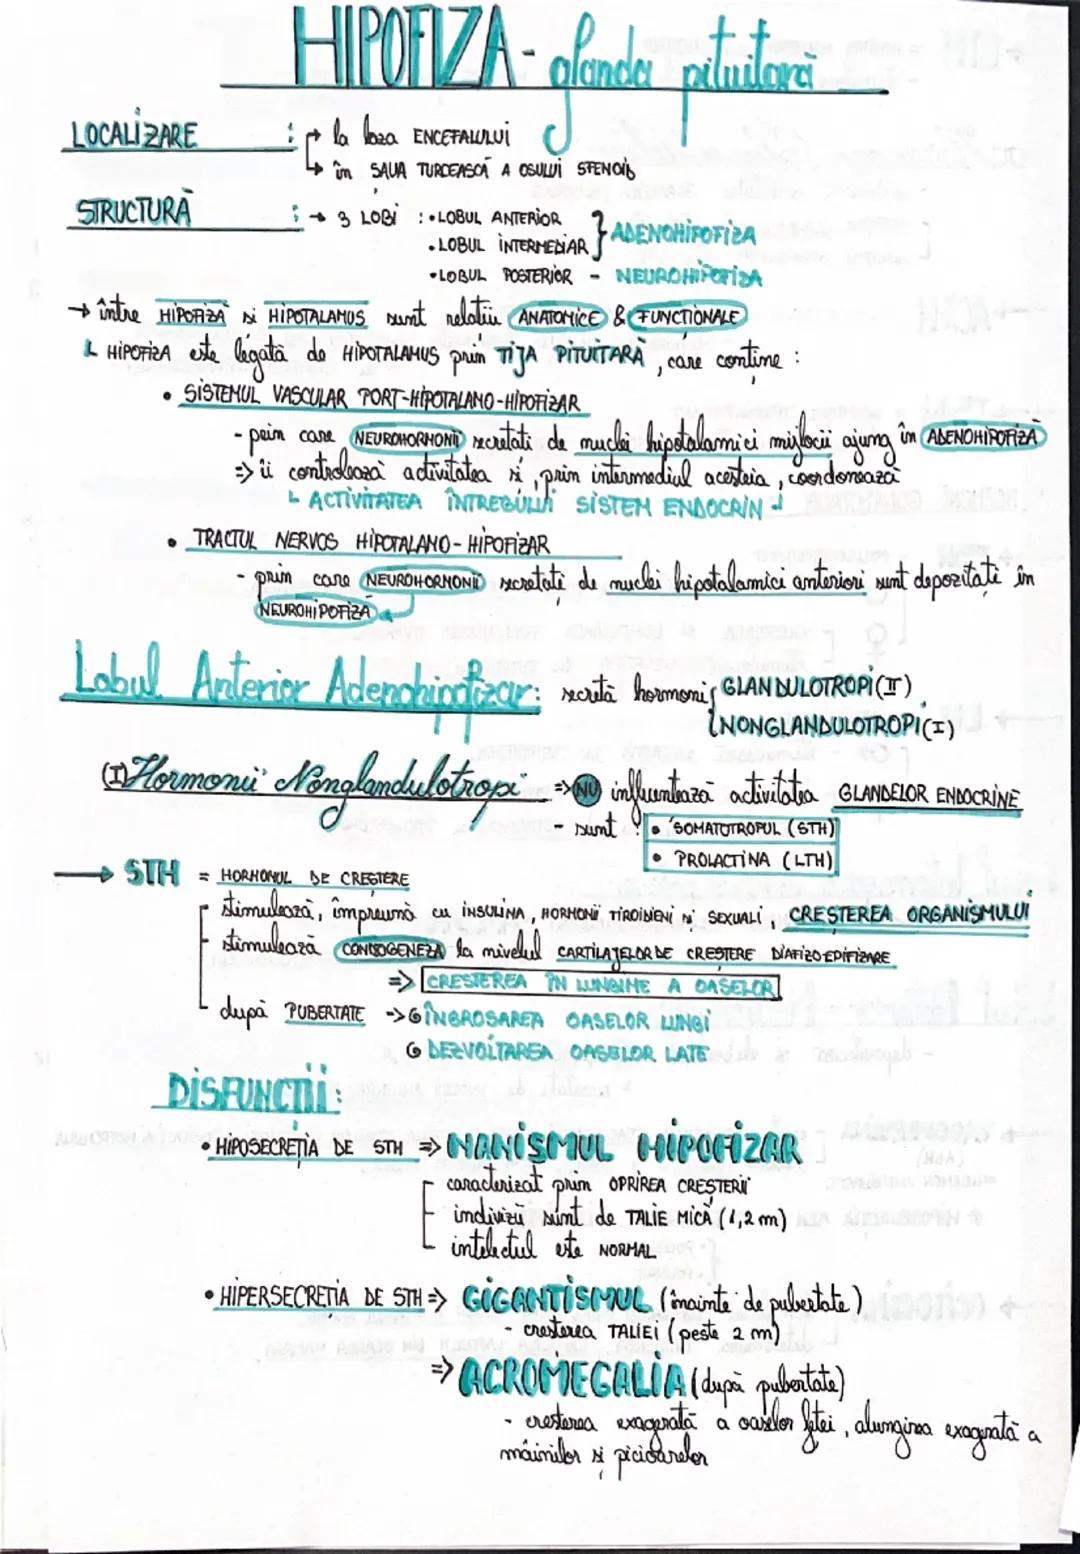 HIPOFIZA - glanda pituitară
LOCALIZARE : → la baza ENCEFALULUI
→ în ȘAUA TURCEASCĂ A OSULUI SFENOID
STRUCTURĂ : → 3 LOBI : • LOBUL ANTERIOR
• LOBUL INTERMEDIAR } ADENOHIPOFIZA
• LOBUL POSTERIOR - NEUROHIPOFIZA
→ între HIPOFIZĂ și HIPOTALAMUS sunt relații ANATOMICE & FUNCȚIONALE
HIPOFIZA este legată de HIPOTALAMUS prin TIJA PITUITARĂ, care conține :
• SISTEMUL VASCULAR PORT-HIPOTALAMO-HIPOFIZAR
- prin care NEUROHORMONII secretați de nuclei hipotalamici mijlocii ajung în ADENOHIPOFIZĂ
=> îi controlează activitatea și, prin intermediul acesteia, coordonează
ACTIVITATEA ÎNTREGULUI SISTEM ENDOCRIN
• TRACTUL NERVOS HIPOTALAMO-HIPOFIZAR
- prin care NEUROHORMONII secretați de nuclei hipotalamici anteriori sunt depozitați în
NEUROHIPOFIZĂ
Lobul Anterior Adenohipofizar: secretă hormoni { GLANDULOTROPI (II)
NONGLANDULOTROPI (I)
(I) Hormonii Nonglandulotropi => NU influentează activitatea GLANDELOR ENDOCRINE
- sunt : • SOMATOTROPUL (STH)
• PROLACTINA (LTH)
→ STH = HORMONUL DE CREȘTERE
stimulează, împreună cu INSULINA, HORMONII TIROIDIENI ȘI SEXUALI, CREȘTEREA ORGANISMULUI
stimulează CONDOGENEZA la nivelul CARTILAJELOR DE CREȘTERE DIAFIZO-EPIFIZARE
=> CREȘTEREA ÎN LUNGIME A OASELOR
după PUBERTATE -> ÎNGROȘAREA OASELOR LUNGI
DEZVOLTAREA OASELOR LATE
DISFUNCȚII :
• HIPOSECREȚIA DE STH => NANISMUL HIPOFIZAR
caracterizat prin OPRIREA CREȘTERII
indivizii sunt de TALIE MICĂ (1,2 m)
intelectul este NORMAL
• HIPERSECREȚIA DE STH => GIGANTISMUL (înainte de pubertate)
- creșterea TALIEI (peste 2 m)
=> ACROMEGALIA (după pubertate)
- creșterea exagerată a oaselor feței, alungirea exagerată a
mâinilor și picioarelor